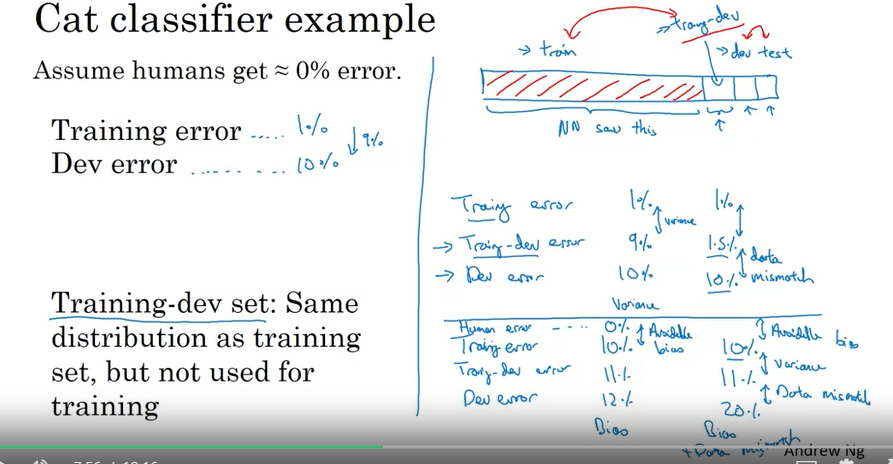 Cat classifier example
Assume humans get ≈ 0% error.
Training error ..... 1%
↓ 9%
Dev error ........ 10%
Training-dev set: Same
distribution as training
set, but not used for
training
→ train
→ traing-dev
→ dev test
NN saw this
Traing error 1% 1%
variance
→ Traing-dev error 9% 1.5%
data
→ Dev error 10% 10% mismatch
Variance
Human error ---- 0% Avoidable Avoidable bias
Traing error 10% bias 10%
Variance
Traing-dev error 11% 11%
Data mismatch
Dev error 12% 20%
Bias Bias
+ Data mismatch
Andrew Ng